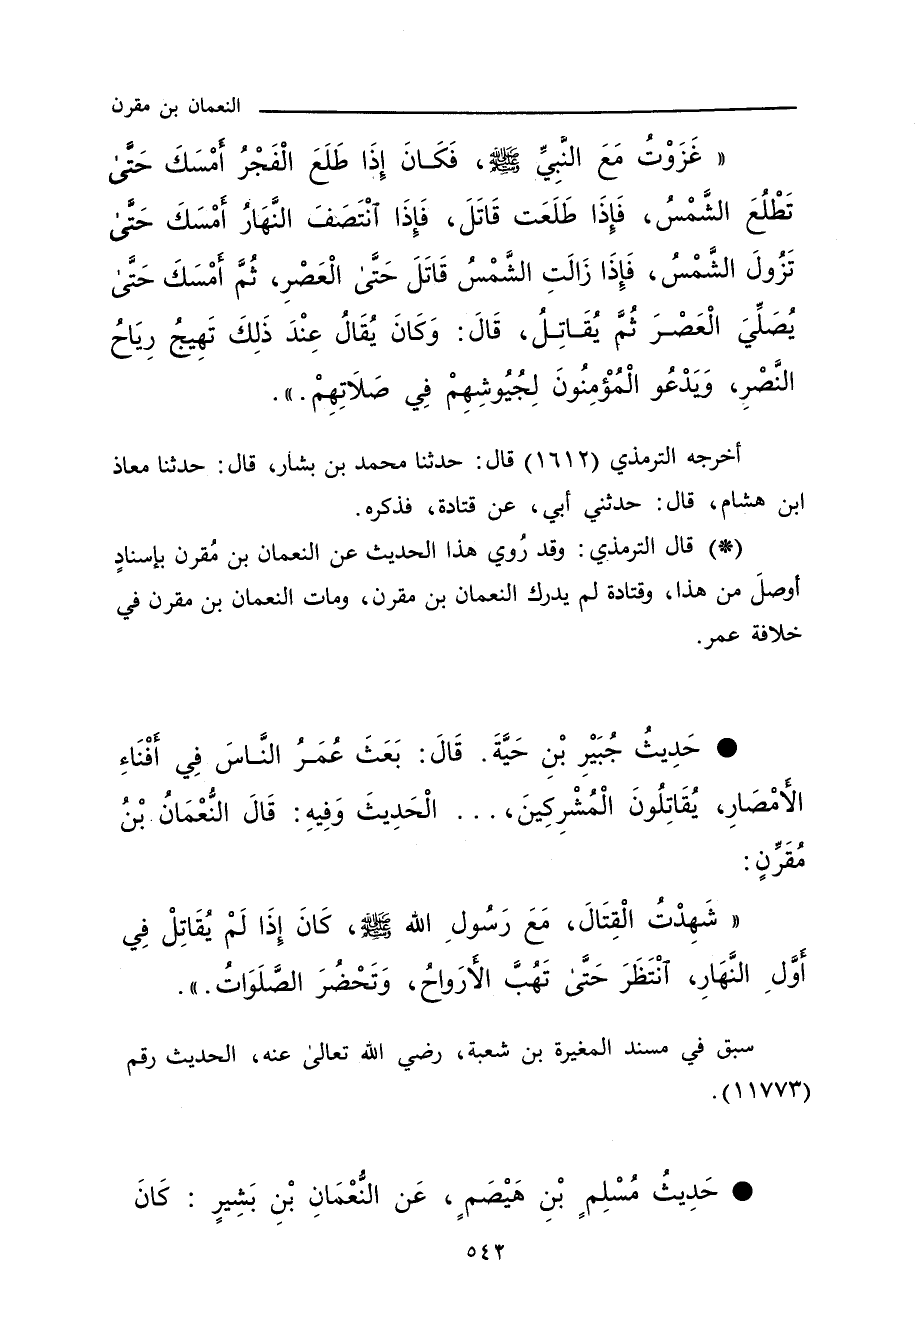 النعمان بن مقرن
« غَزَوْتُ مَعَ النَّبِيِّ ﷺ، فَكَـانَ إِذَا طَلَعَ الْفَجْرُ أَمْسَكَ حَتَّىٰ
تَطْلُعَ الشَّمْسُ، فَإِذَا طَلَعَت قَاتَلَ، فَإِذَا ٱنْتَصَفَ النَّهَارُ أَمْسَكَ حَتَّىٰ
تَزُولَ الشَّمْسُ، فَإِذَا زَالَتِ الشَّمْسُ قَاتَلَ حَتَّىٰ الْعَصْرِ، ثُمَّ أَمْسَكَ حَتَّىٰ
يُصَلِّيَ الْعَصْـرَ ثُمَّ يُقَـاتِـلُ، قَالَ: وَكَانَ يُقَالُ عِنْدَ ذَلِكَ تَهِيجُ رِيَاحُ
النَّصْرِ، وَيَدْعُو الْمُؤْمِنُونَ لِجُيُوشِهِمْ فِي صَلَاتِهِمْ.».
أخرجه الترمذي (١٦١٢) قال: حدثنا محمد بن بشار، قال: حدثنا معاذ
ابن هشام، قال: حدثني أبي، عن قتادة، فذكره.
(*) قال الترمذي: وقد رُوي هذا الحديث عن النعمان بن مُقرن بإسنادٍ
أوصلَ من هذا، وقتادة لم يدرك النعمان بن مقرن، ومات النعمان بن مقرن في
خلافة عمر.
● حَدِيثُ جُبَيْرِ بْنِ حَيَّةَ. قَالَ: بَعَثَ عُمَـرُ النَّـاسَ فِي أَفْنَاءِ
الأَمْصَارِ، يُقَاتِلُونَ الْمُشْرِكِينَ، ... الْحَدِيثَ وَفِيهِ: قَالَ النُّعْمَانُ بْنُ
مُقَرِّنٍ:
« شَهِدْتُ الْقِتَالَ، مَعَ رَسُولِ الله ﷺ، كَانَ إِذَا لَمْ يُقَاتِلْ فِي
أَوَّلِ النَّهَارِ، ٱنْتَظَرَ حَتَّىٰ تَهُبَّ الأَرْوَاحُ، وَتَحْضُرَ الصَّلَوَاتُ.».
سبق في مسند المغيرة بن شعبة، رضي الله تعالىٰ عنه، الحديث رقم
(١١٧٧٣).
● حَدِيثُ مُسْلِمِ بْنِ هَيْصَمٍ، عَنِ النُّعْمَانِ بْنِ بَشِيرٍ: كَانَ
٥٤٣